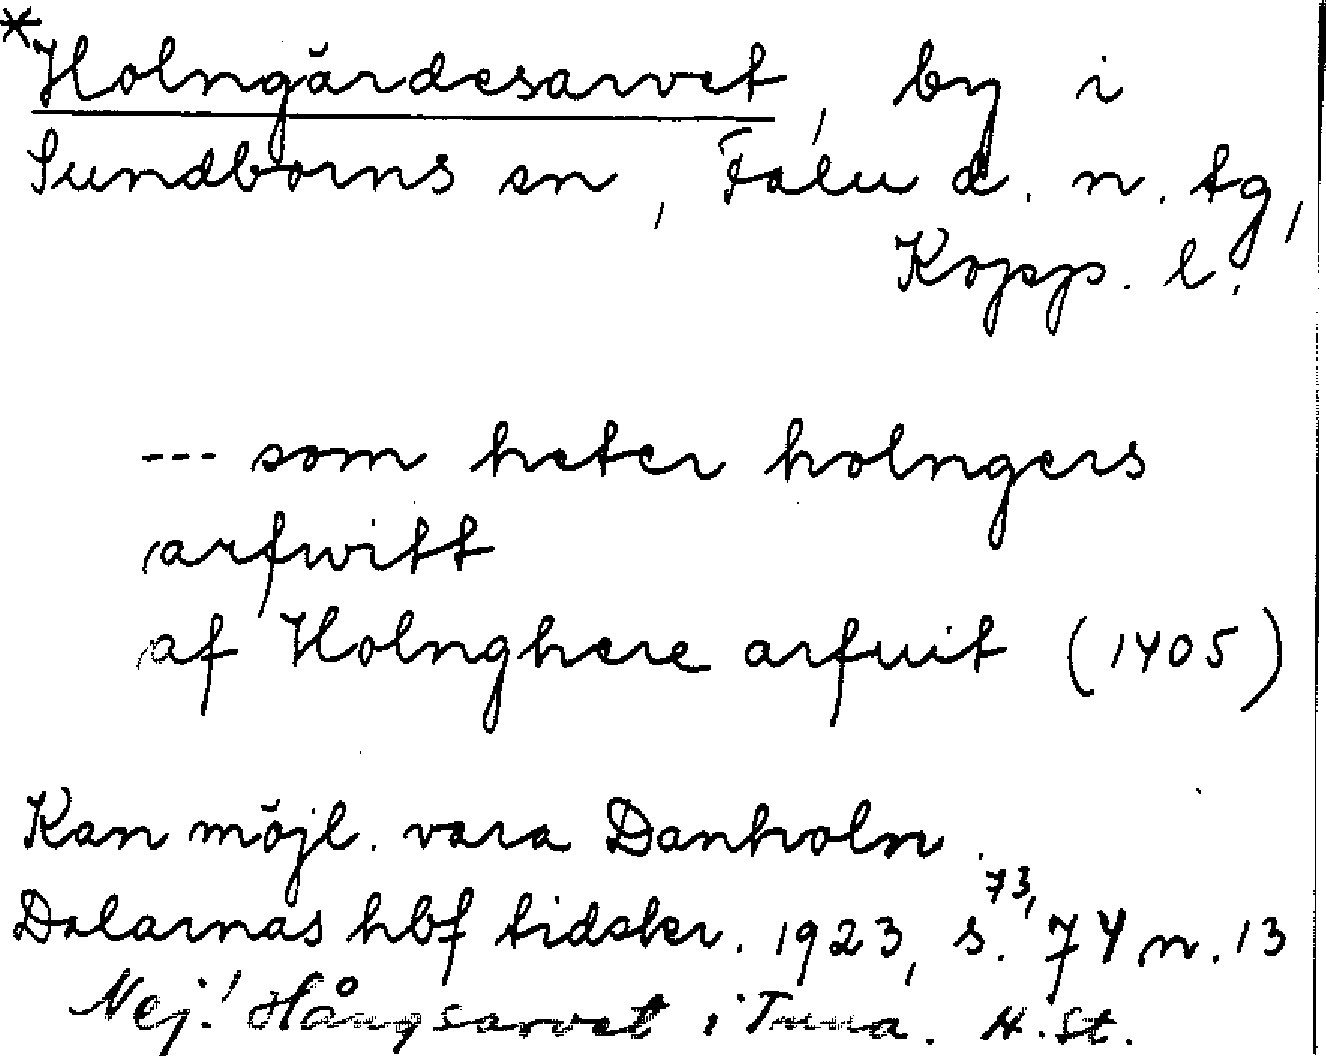 *Holngärdesarvet, by i
Sundborns sn, Falu d. n. tg,
Kopp. l.
--- som heter holngers
arfwitt
af Holnghere arfuit (1405)
Kan möjl. vara Danholn.
Dalarnas hbf tidskr. 1923, s. 73, 74 n. 13
Nej! Hångsarvet i Tuna. H. St.